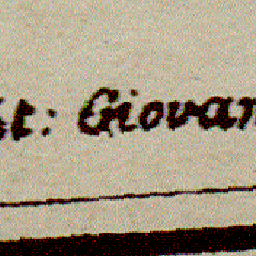 st: Giovan